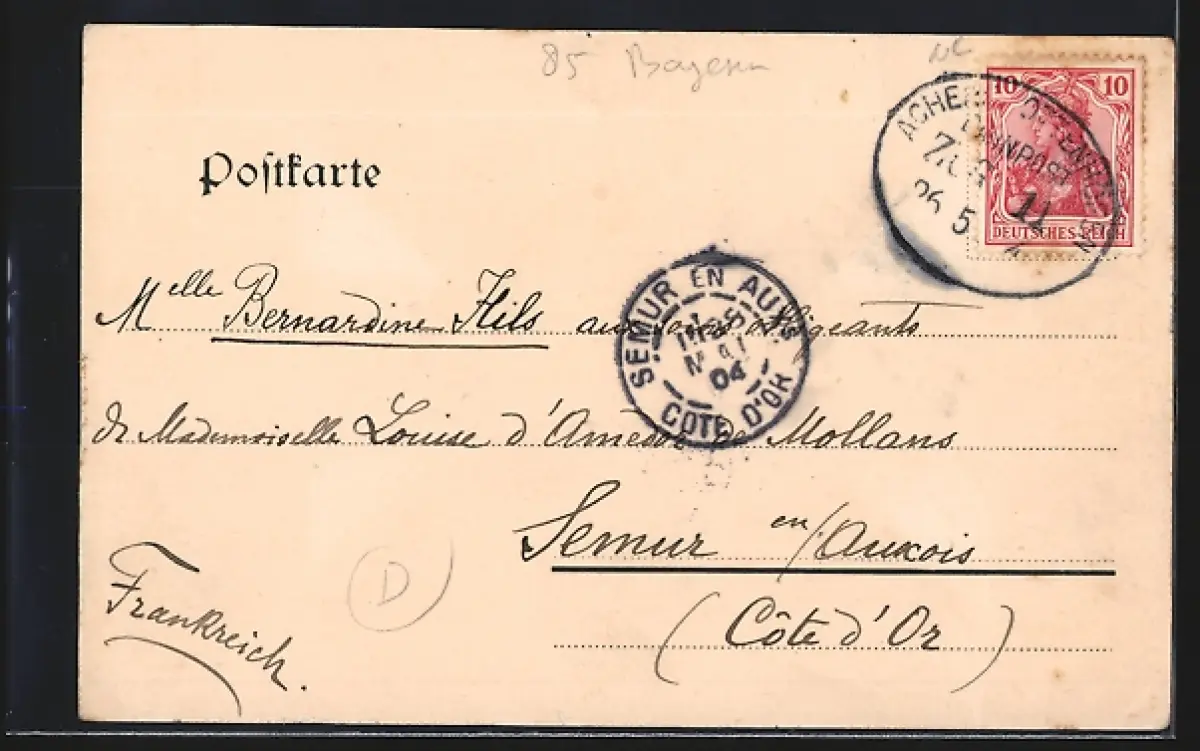 85 Bayern
10 10
DEUTSCHES REICH
ACHERN OTTENHÖFEN
BAHNPOST
ZUG 11
26 5
Poſtkarte
Melle Bernardine Hils aux soins obligeants
de Mademoiselle Louise d'Amédor de Mollans
SEMUR EN AUXS
MAI
04
COTE D'OR
Semur en/Auxois
(Côte d'Or)
Frankreich.
D